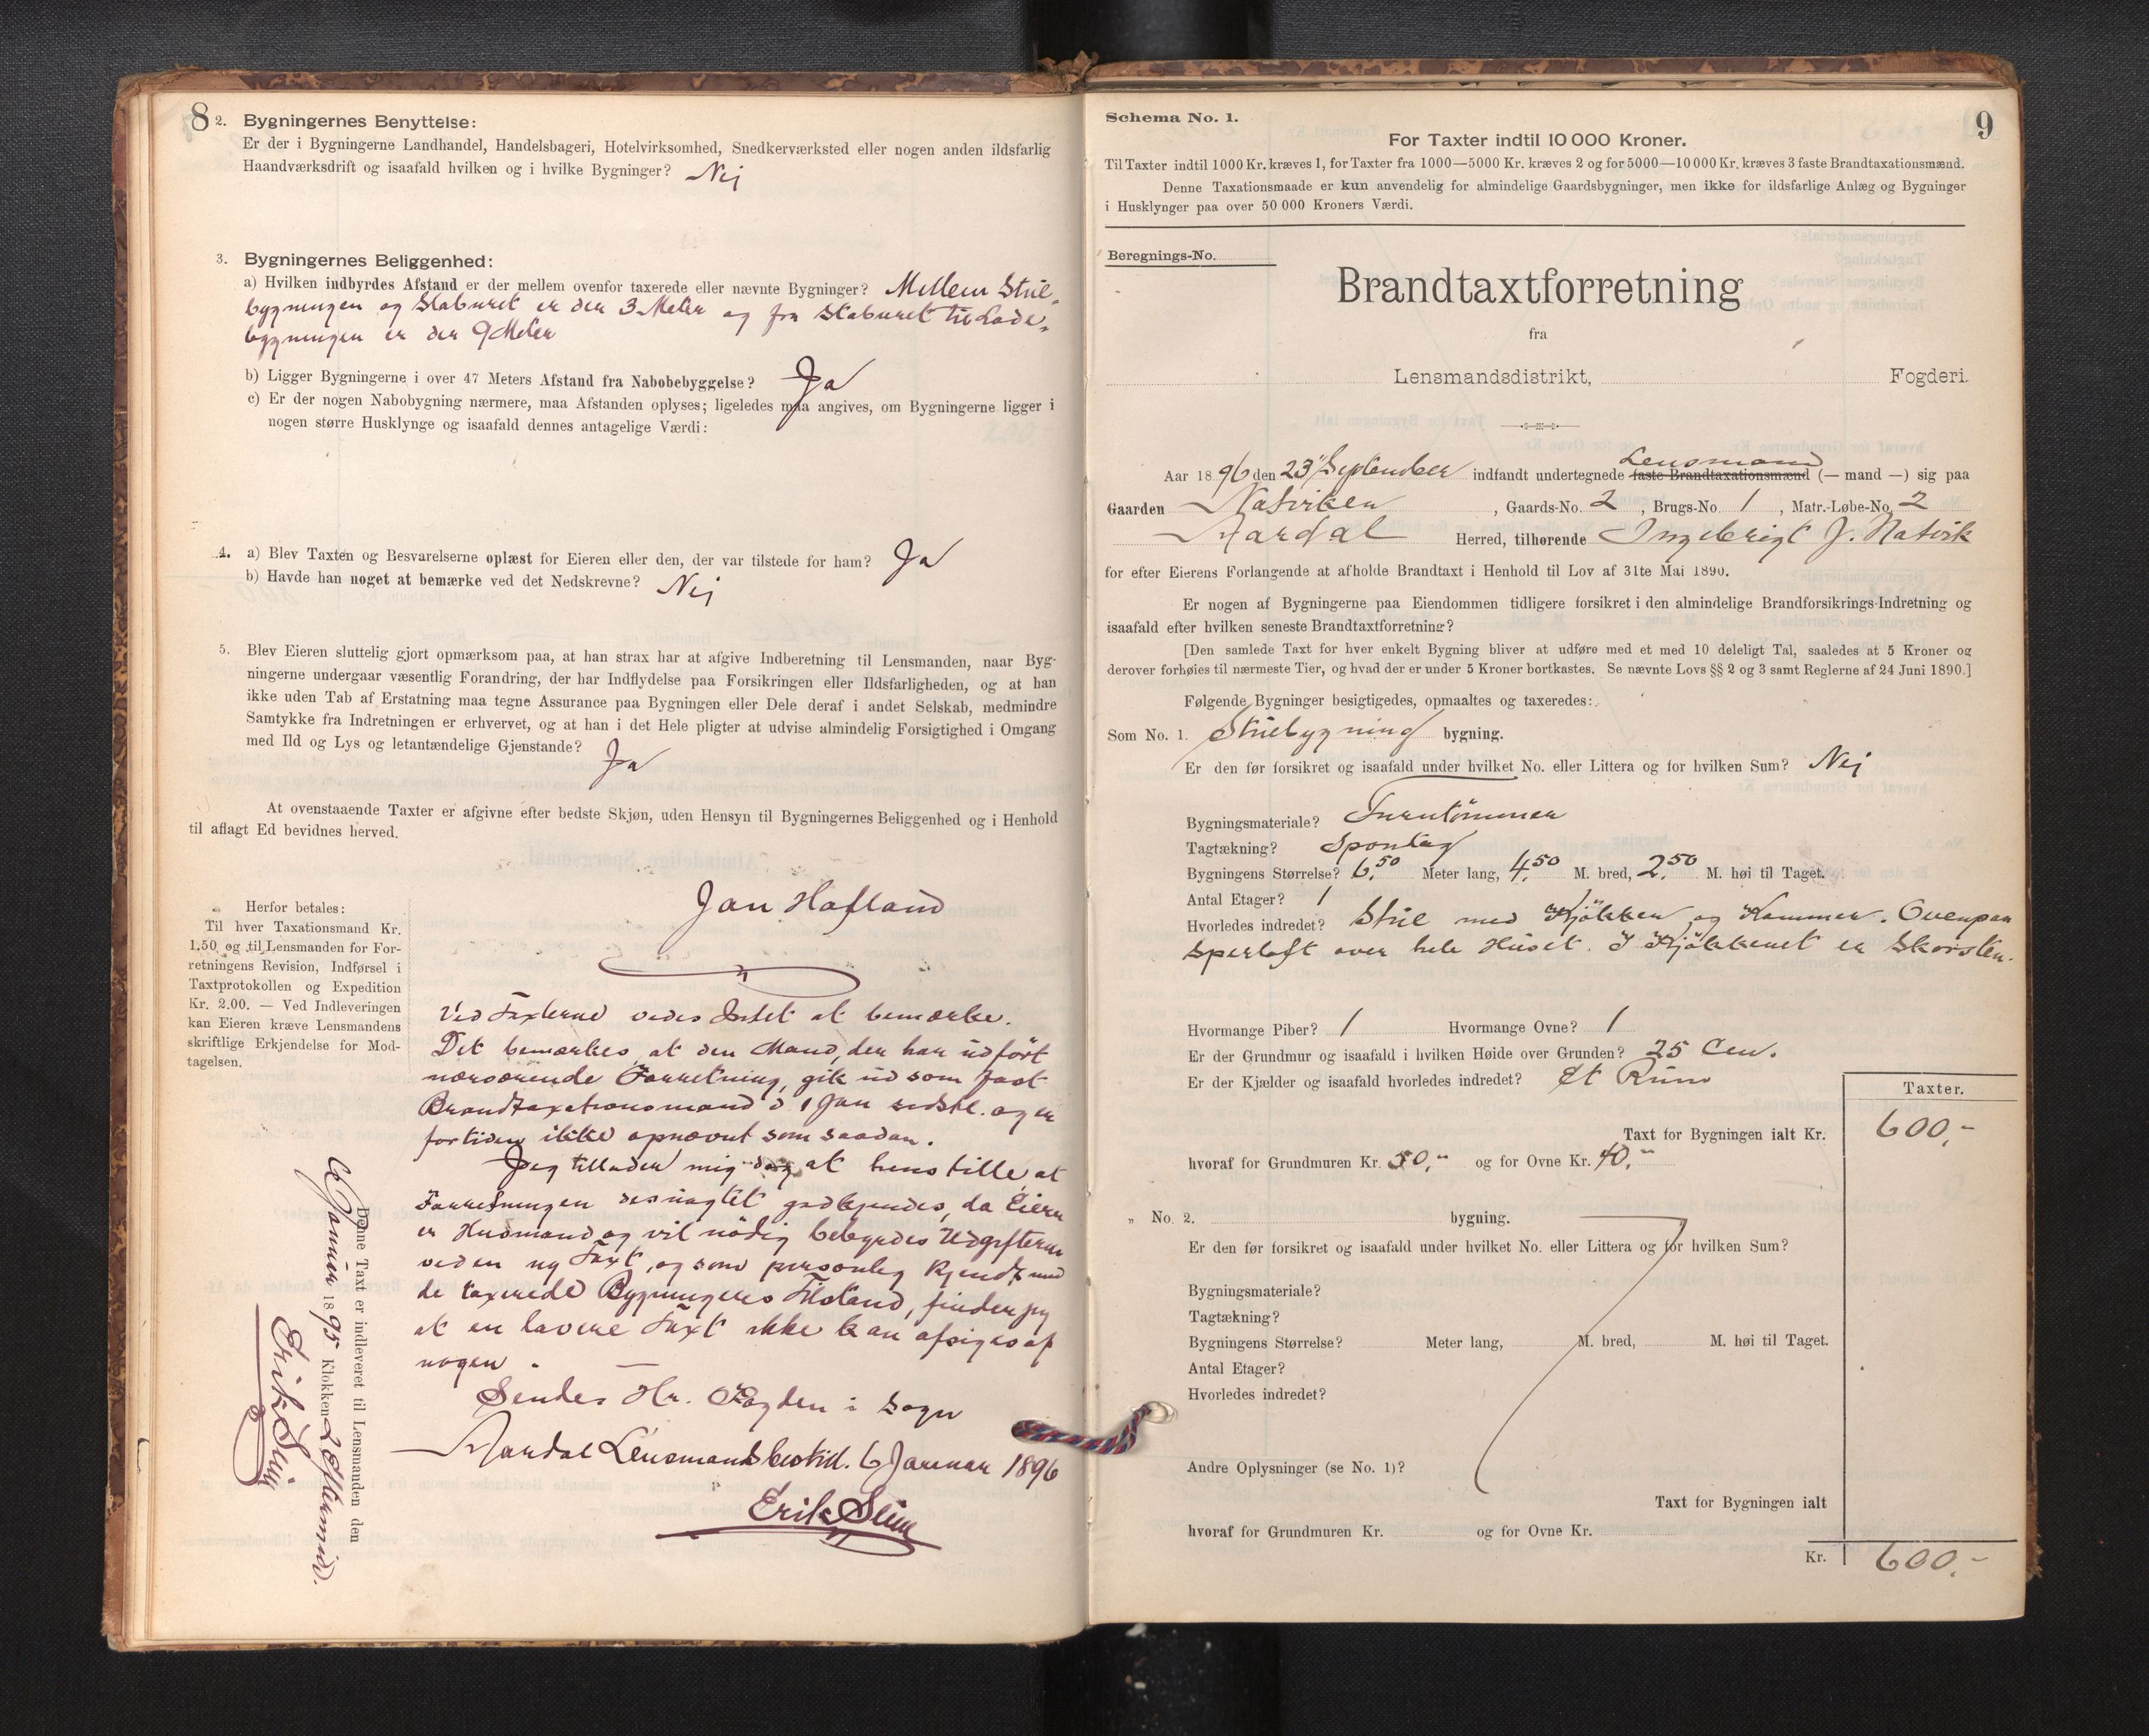 8
2. Bygningernes Benyttelse:
Er der i Bygningerne Landhandel, Handelsbageri, Hotelvirksomhed, Snedkerværksted eller nogen anden ildsfarlig
Haandværksdrift og isaafald hvilken og i hvilke Bygninger? Nej
3. Bygningernes Beliggenhed:
a) Hvilken indbyrdes Afstand er der mellem ovenfor taxerede eller nævnte Bygninger? Mellem Stue-
bygningen og Staburet er der 3 Meter og fra Staburet til Lade-
bygningen er der 9 Meter
b) Ligger Bygningerne i over 47 Meters Afstand fra Nabobebyggelse? Ja
c) Er der nogen Nabobygning nærmere, maa Afstanden oplyses; ligeledes maa angives, om Bygningerne ligger i
nogen større Husklynge og isaafald dennes antagelige Værdi:
4. a) Blev Taxten og Besvarelserne oplæst for Eieren eller den, der var tilstede for ham? Ja
b) Havde han noget at bemærke ved det Nedskrevne? Nej
5. Blev Eieren sluttelig gjort opmærksom paa, at han strax har at afgive Indberetning til Lensmanden, naar Byg-
ningerne undergaar væsentlig Forandring, der har Indflydelse paa Forsikringen eller Ildsfarligheden, og at han
ikke uden Tab af Erstatning maa tegne Assurance paa Bygningen eller Dele deraf i andet Selskab, medmindre
Samtykke fra Indretningen er erhvervet, og at han i det Hele pligter at udvise almindelig Forsigtighed i Omgang
med Ild og Lys og letantændelige Gjenstande? Ja
At ovenstaaende Taxter er afgivne efter bedste Skjøn, uden Hensyn til Bygningernes Beliggenhed og i Henhold
til aflagt Ed bevidnes herved.
Jan Hofland
Herfor betales:
Til hver Taxationsmand Kr.
1.50 og til Lensmanden for For-
retningens Revision, Indførsel i
Taxtprotokollen og Expedition
Kr. 2.00. — Ved Indleveringen
kan Eieren kræve Lensmandens
skriftlige Erkjendelse for Mod-
tagelsen.
Ved Taxterne vides Intet at bemærke.
Det bemærkes, at den Mand, der har udført
nærværende Forretning, gik ud som fast
Brandtaxationsmand d 1 Jan sidstl. og er
fortiden ikke opnævnt som saadan.
Jeg tillader mig dog at henstille, at
Forretningen desuagtet godkjendes, da Eieren
er Husmand og vil nødig bebyrdes Udgifterne
ved en ny Taxt, og som personlig kjendt med
de taxerede Bygningers Tilstand, finder jeg
at en lavere Taxt ikke kan afsiges af
nogen.
Sendes Hr. Fogden i Sogn
Aardal Lensmandsbestill. 6 Januar 1896
Erik Slinn
Denne Taxt er indleveret til Lensmanden den
6 Januar 1895 Klokken 2 Eftermid.
Erik Slinn
9
Schema No. 1.
For Taxter indtil 10 000 Kroner.
Til Taxter indtil 1000 Kr. kræves 1, for Taxter fra 1000—5000 Kr. kræves 2 og for 5000—10 000 Kr. kræves 3 faste Brandtaxationsmænd.
Denne Taxationsmaade er kun anvendelig for almindelige Gaardsbygninger, men ikke for ildsfarlige Anlæg og Bygninger
i Husklynger paa over 50 000 Kroners Værdi.
Beregnings-No.
Brandtaxtforretning
fra
Lensmandsdistrikt, Fogderi.
Lensmand
Aar 1896 den 23 September indfandt undertegnede faste Brandtaxationsmænd (— mand —) sig paa
Gaarden Natviken, Gaards-No. 2, Brugs-No. 1, Matr.-Løbe-No. 2
Aardal Herred, tilhørende Ingebrigt J. Natvik
for efter Eierens Forlangende at afholde Brandtaxt i Henhold til Lov af 31te Mai 1890.
Er nogen af Bygningerne paa Eiendommen tidligere forsikret i den almindelige Brandforsikrings-Indretning og
isaafald efter hvilken seneste Brandtaxtforretning?
[Den samlede Taxt for hver enkelt Bygning bliver at udføre med et med 10 deleligt Tal, saaledes at 5 Kroner og
derover forhøies til nærmeste Tier, og hvad der er under 5 Kroner bortkastes. Se nævnte Lovs §§ 2 og 3 samt Reglerne af 24 Juni 1890.]
Følgende Bygninger besigtigedes, opmaaltes og taxeredes:
Som No. 1. Stuebygning bygning.
Er den før forsikret og isaafald under hvilket No. eller Littera og for hvilken Sum? Nej
Bygningsmateriale? Furutømmer
Tagtækning? Spontag
Bygningens Størrelse? 6,50 Meter lang, 4,50 M. bred, 2,50 M. høi til Taget.
Antal Etager? 1
Hvorledes indredet? Stue med Kjøkken og Kammer. Ovenpaa
Sperloft over hele Huset. I Kjøkkenet er Skorsten.
Hvormange Piber? 1 Hvormange Ovne? 1
Er der Grundmur og isaafald i hvilken Høide over Grunden? 25 Cen.
Er der Kjælder og isaafald hvorledes indredet? Et Rum
Taxter.
Taxt for Bygningen ialt Kr. 600,-
hvoraf for Grundmuren Kr. 50,- og for Ovne Kr. 40,-
" No. 2. bygning.
Er den før forsikret og isaafald under hvilket No. eller Littera og for hvilken Sum?
Bygningsmateriale?
Tagtækning?
Bygningens Størrelse? Meter lang, M. bred, M. høi til Taget.
Antal Etager?
Hvorledes indredet?
Andre Oplysninger (se No. 1)?
Taxt for Bygningen ialt
hvoraf for Grundmuren Kr. og for Ovne Kr.
Kr. 600,-